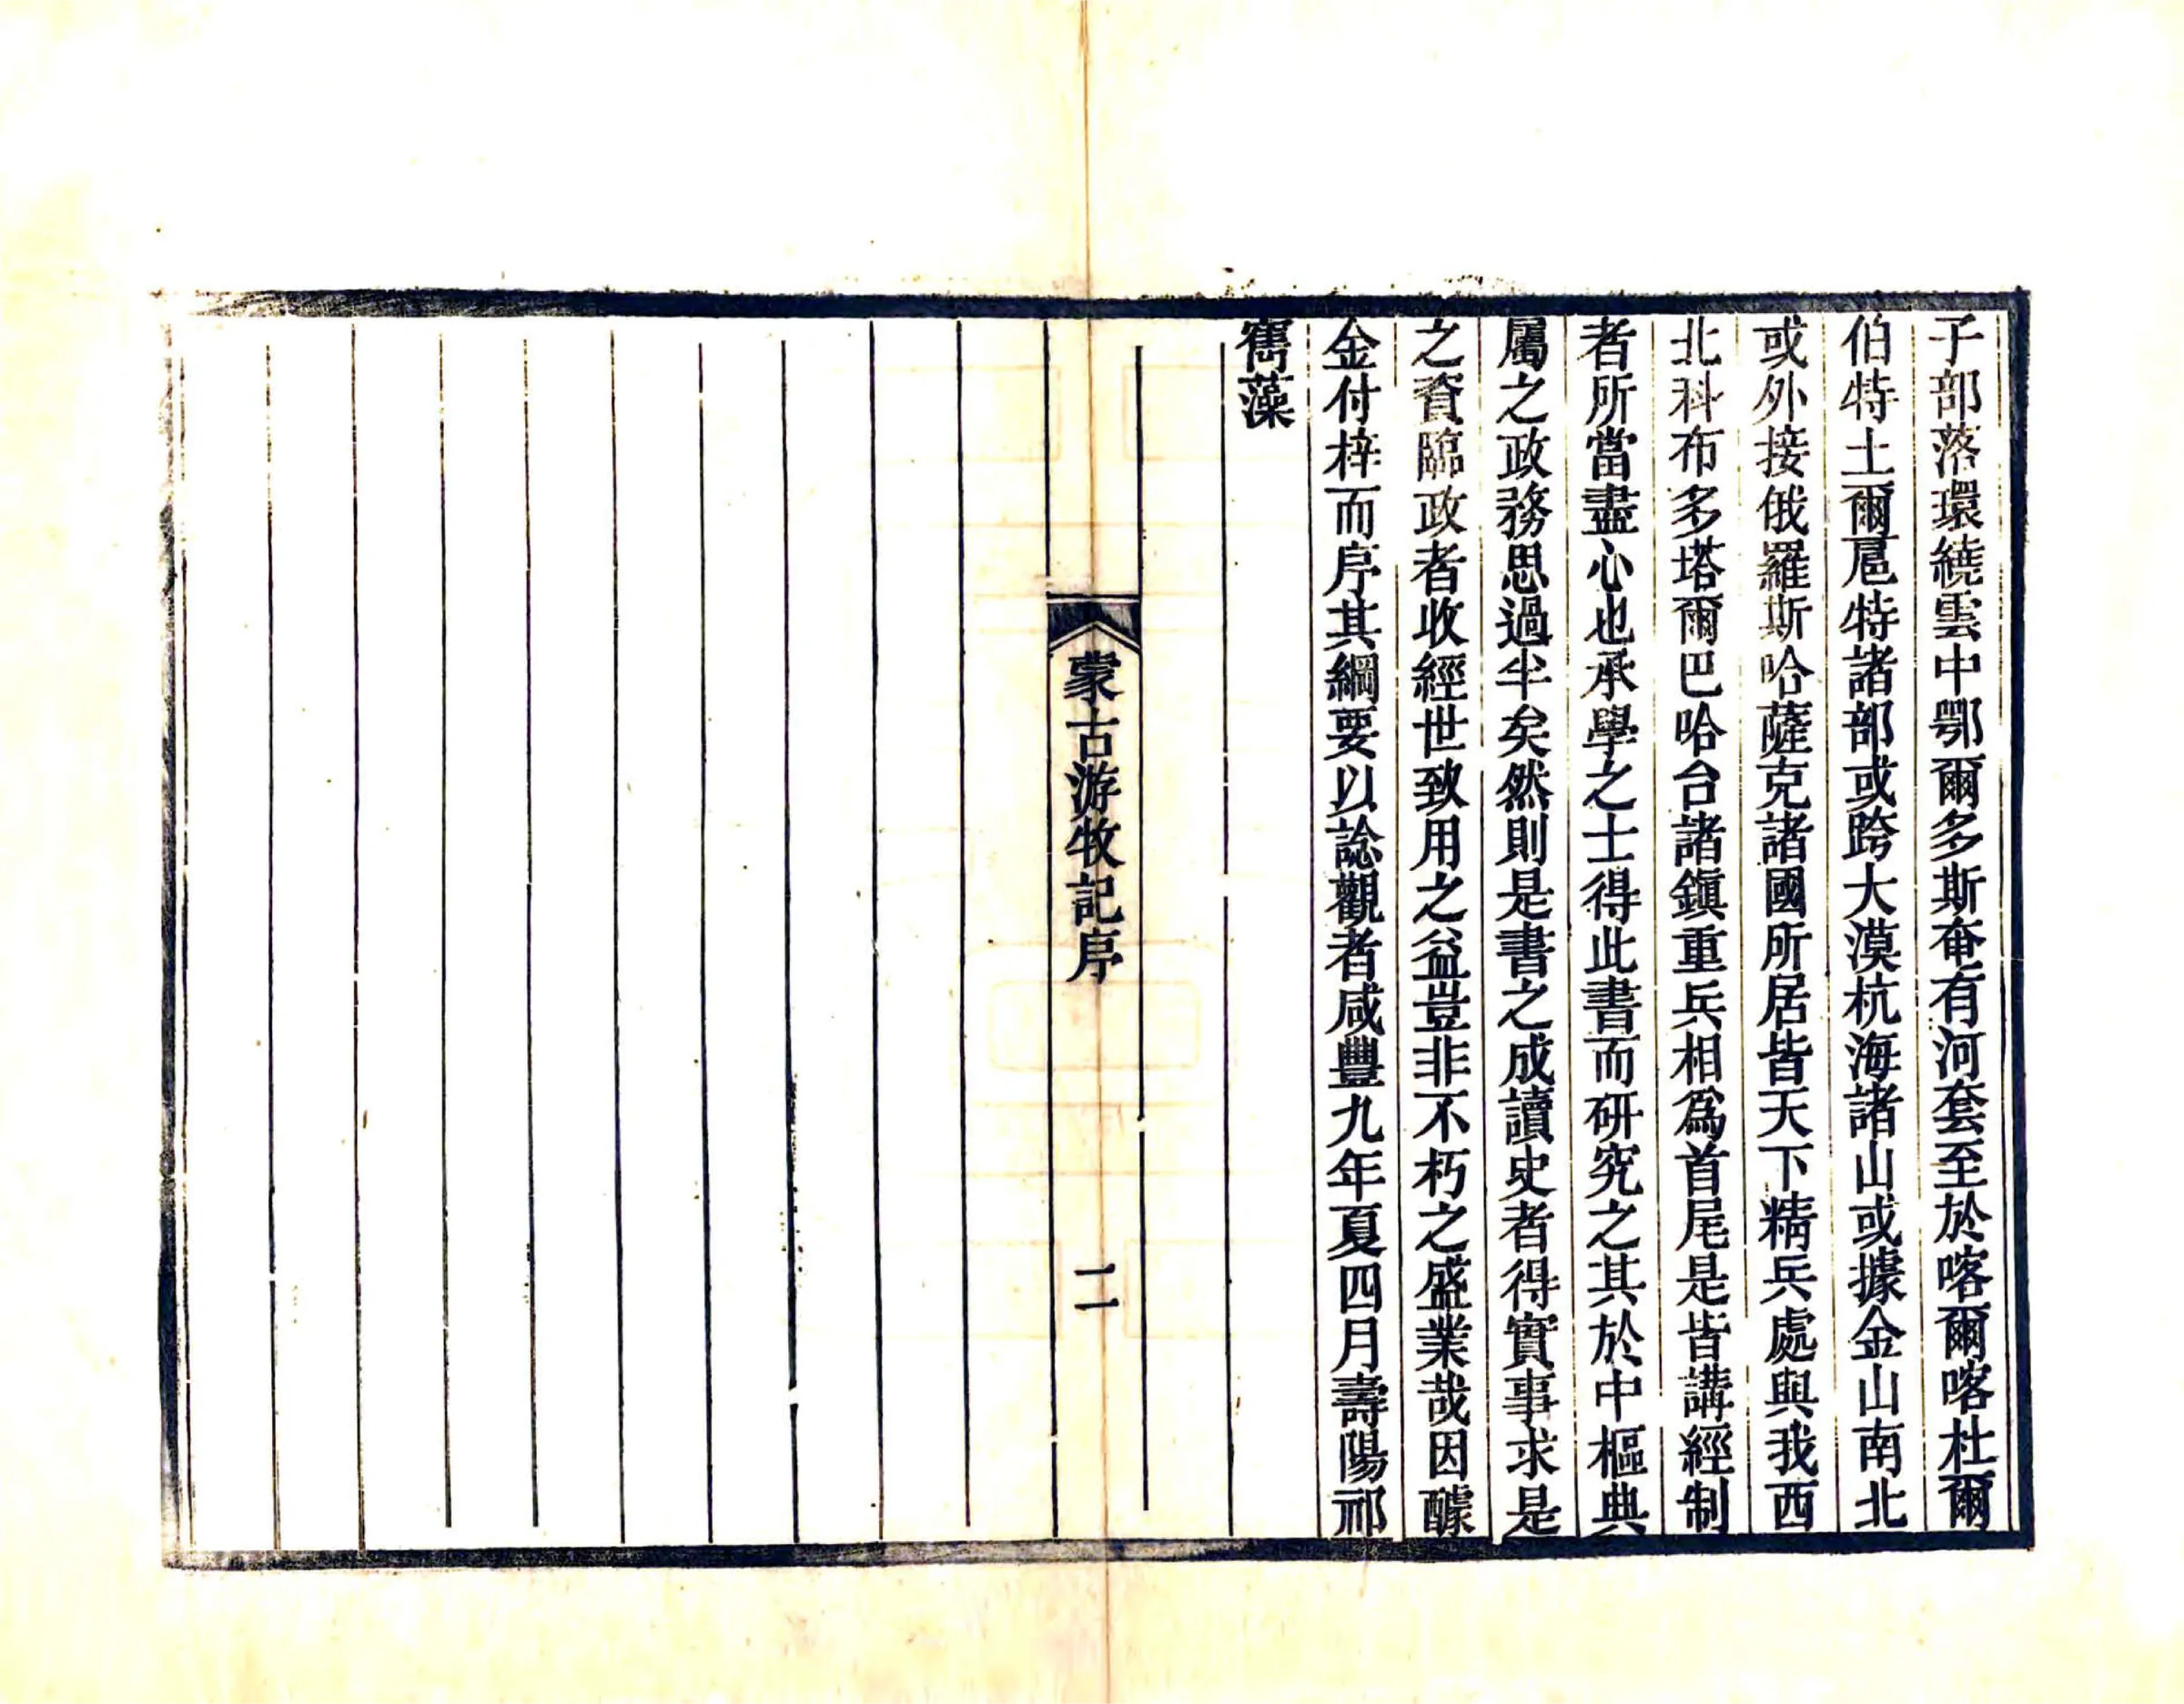 子部落環繞雲中鄂爾多斯奄有河套至於喀爾喀杜爾
伯特土爾扈特諸部或跨大漠杭海諸山或據金山南北
或外接俄羅斯哈薩克諸國所居皆天下精兵處與我西
北科布多塔爾巴哈台諸鎭重兵相爲首尾是皆講經制
者所當盡心也承學之士得此書而研究之其於中樞典
屬之政務思過半矣然則是書之成讀史者得實事求是
之資臨政者收經世致用之益豈非不朽之盛業哉因醵
金付梓而序其綱要以諗觀者咸豐九年夏四月壽陽祁
寯藻
蒙古游牧記序
二